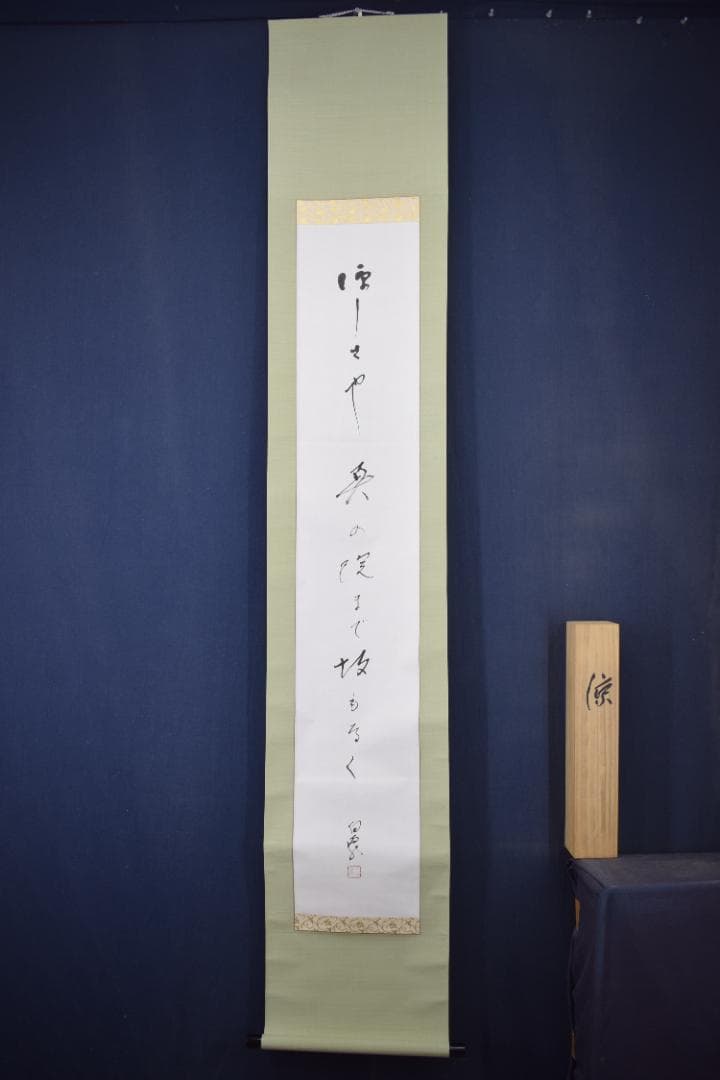 涼しさや奥の院まで坂もなく
涼